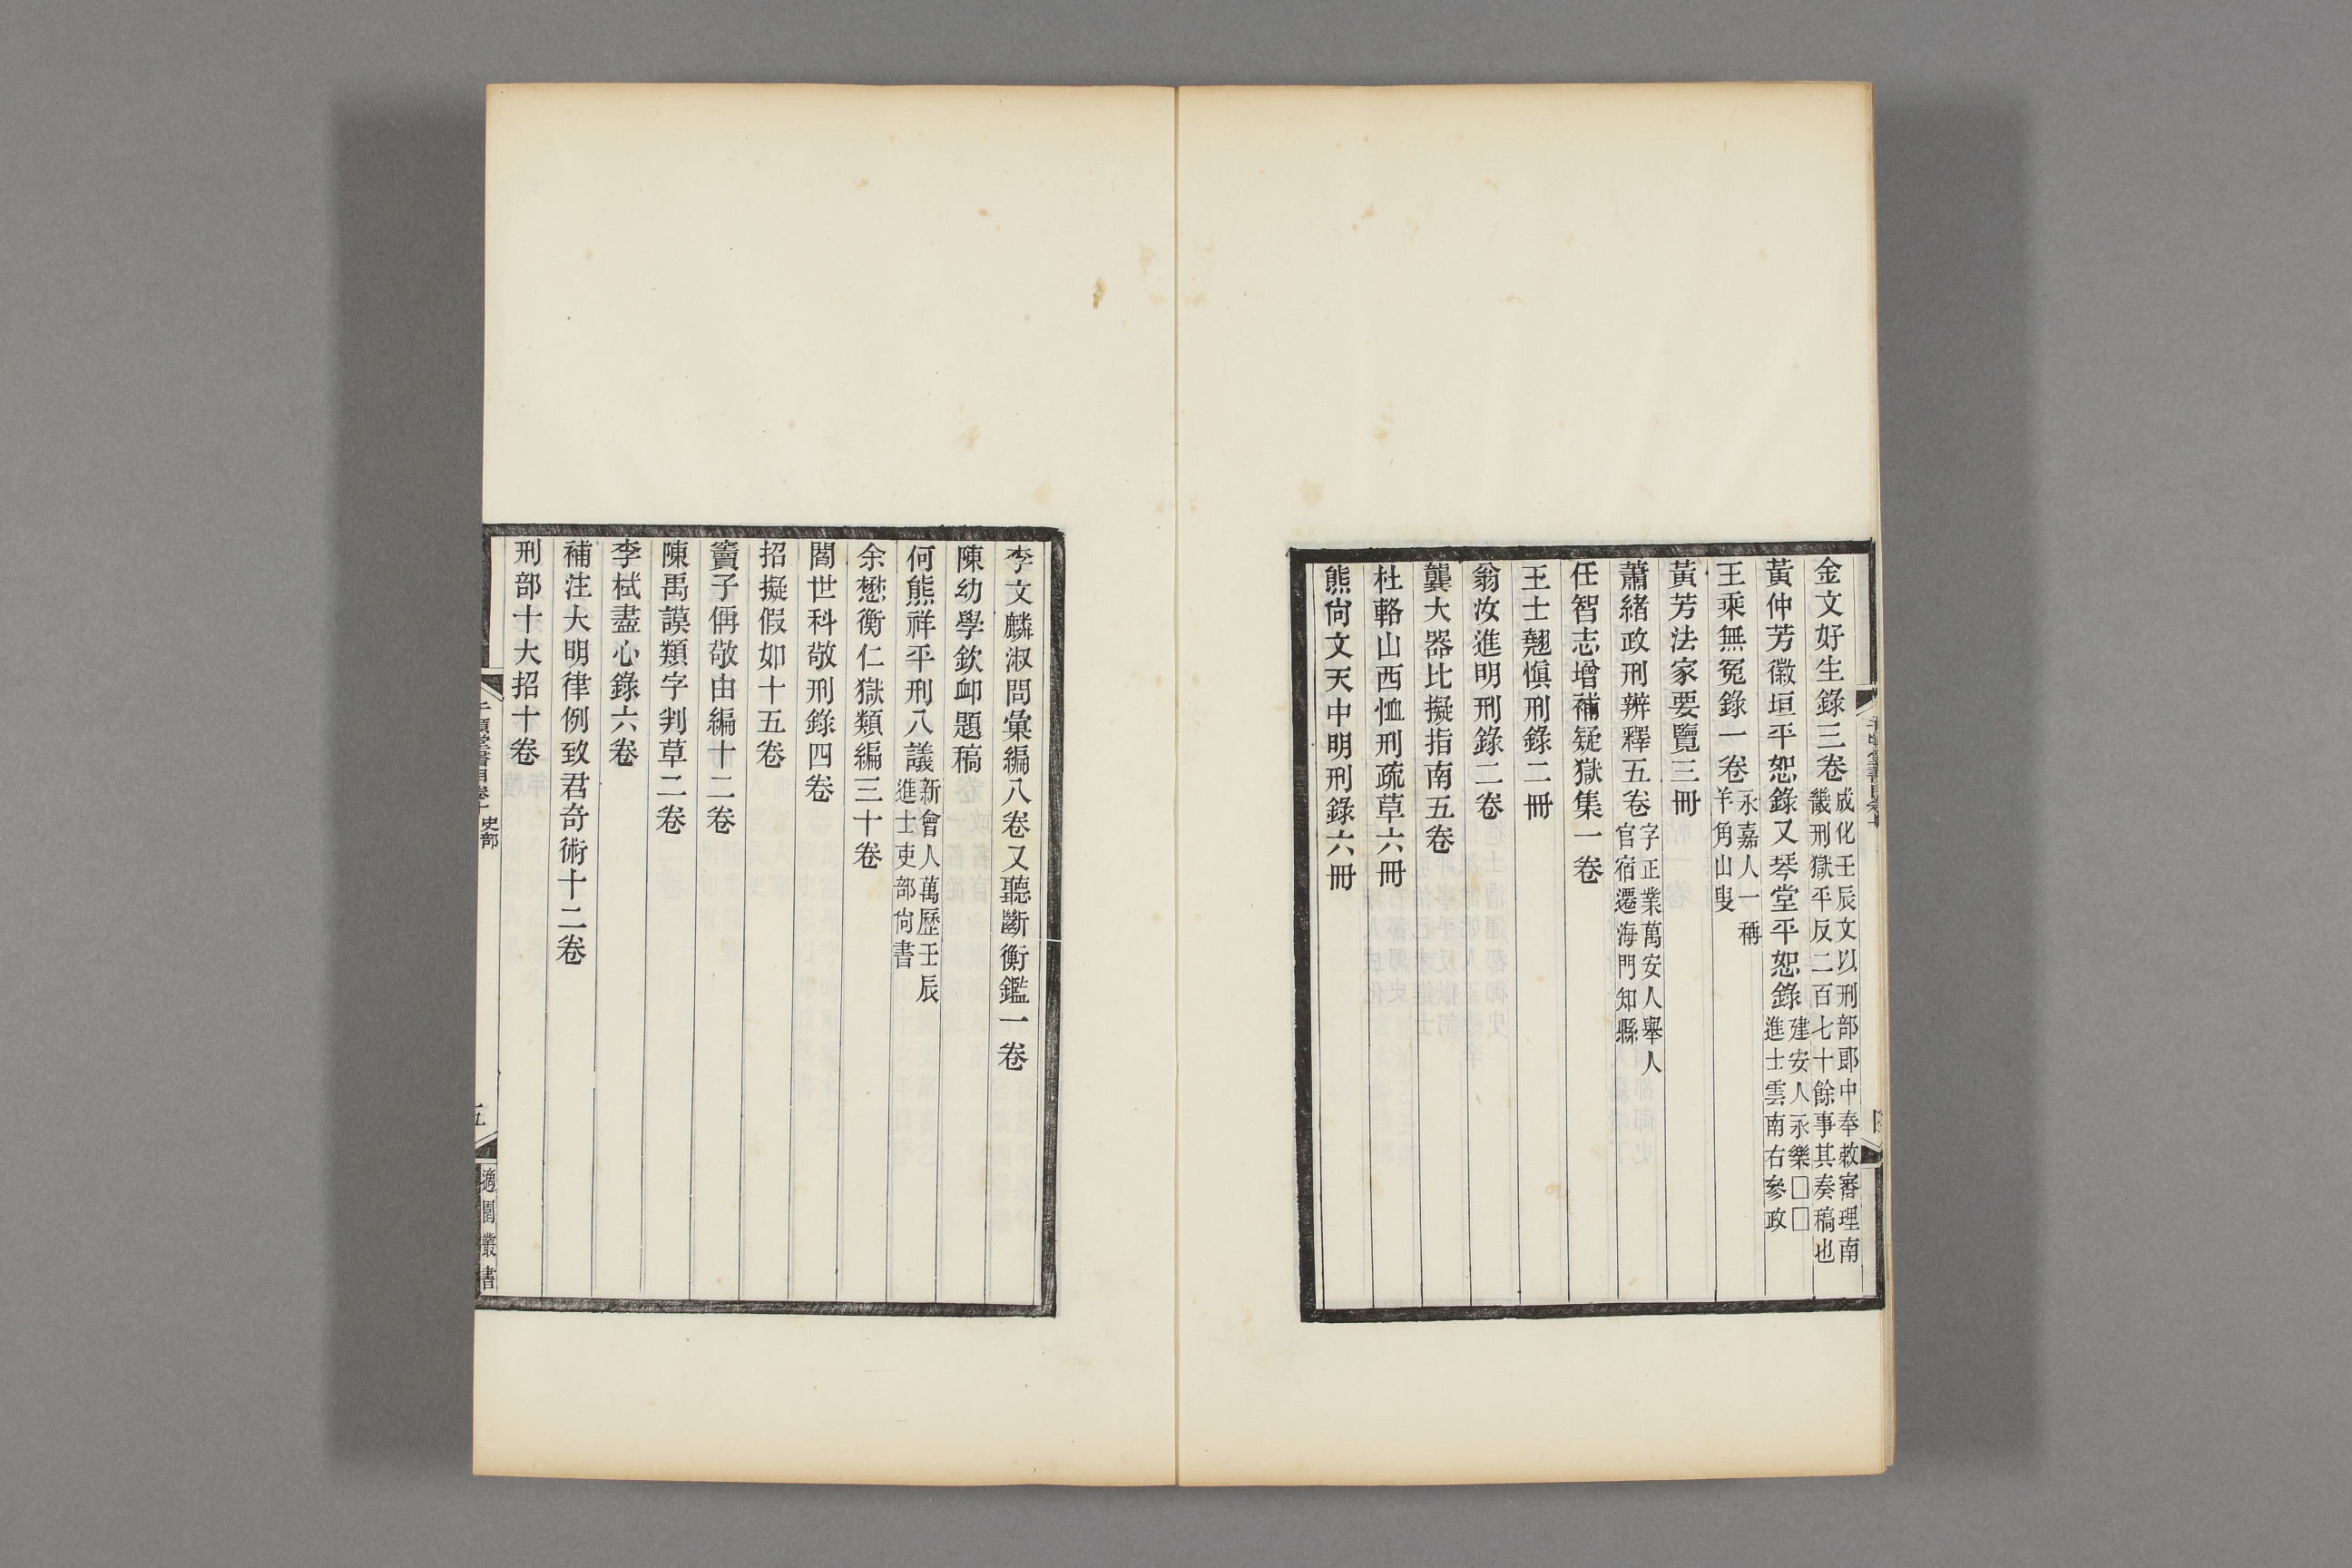 金文好生錄三卷成化壬辰文以刑部郎中奉敕審理南畿刑獄平反二百七十餘事其奏稿也
黃仲芳徽垣平恕錄又琴堂平恕錄建安人永樂□□進士雲南右參政
王乘無冤錄一卷永嘉人一稱羊角山叟
黃芳法家要覽三冊
蕭緒政刑辨釋五卷字正業萬安人舉人官宿遷海門知縣
任智志增補疑獄集一卷
王士翹慎刑錄二冊
翁汝進明刑錄二卷
龔大器比擬指南五卷
杜輅山西恤刑疏草六冊
熊尙文天中明刑錄六冊
李文麟淑問彙編八卷又聽斷衡鑑一卷
陳幼學欽卹題稿
何熊祥平刑八議新會人萬歷壬辰進士吏部尙書
余懋衡仁獄類編三十卷
閻世科敬刑錄四卷
招擬假如十五卷
竇子偁敬由編十二卷
陳禹謨類字判草二卷
李栻盡心錄六卷
補注大明律例致君奇術十二卷
刑部十大招十卷
千頃堂書目卷十 史部
五
適園叢書